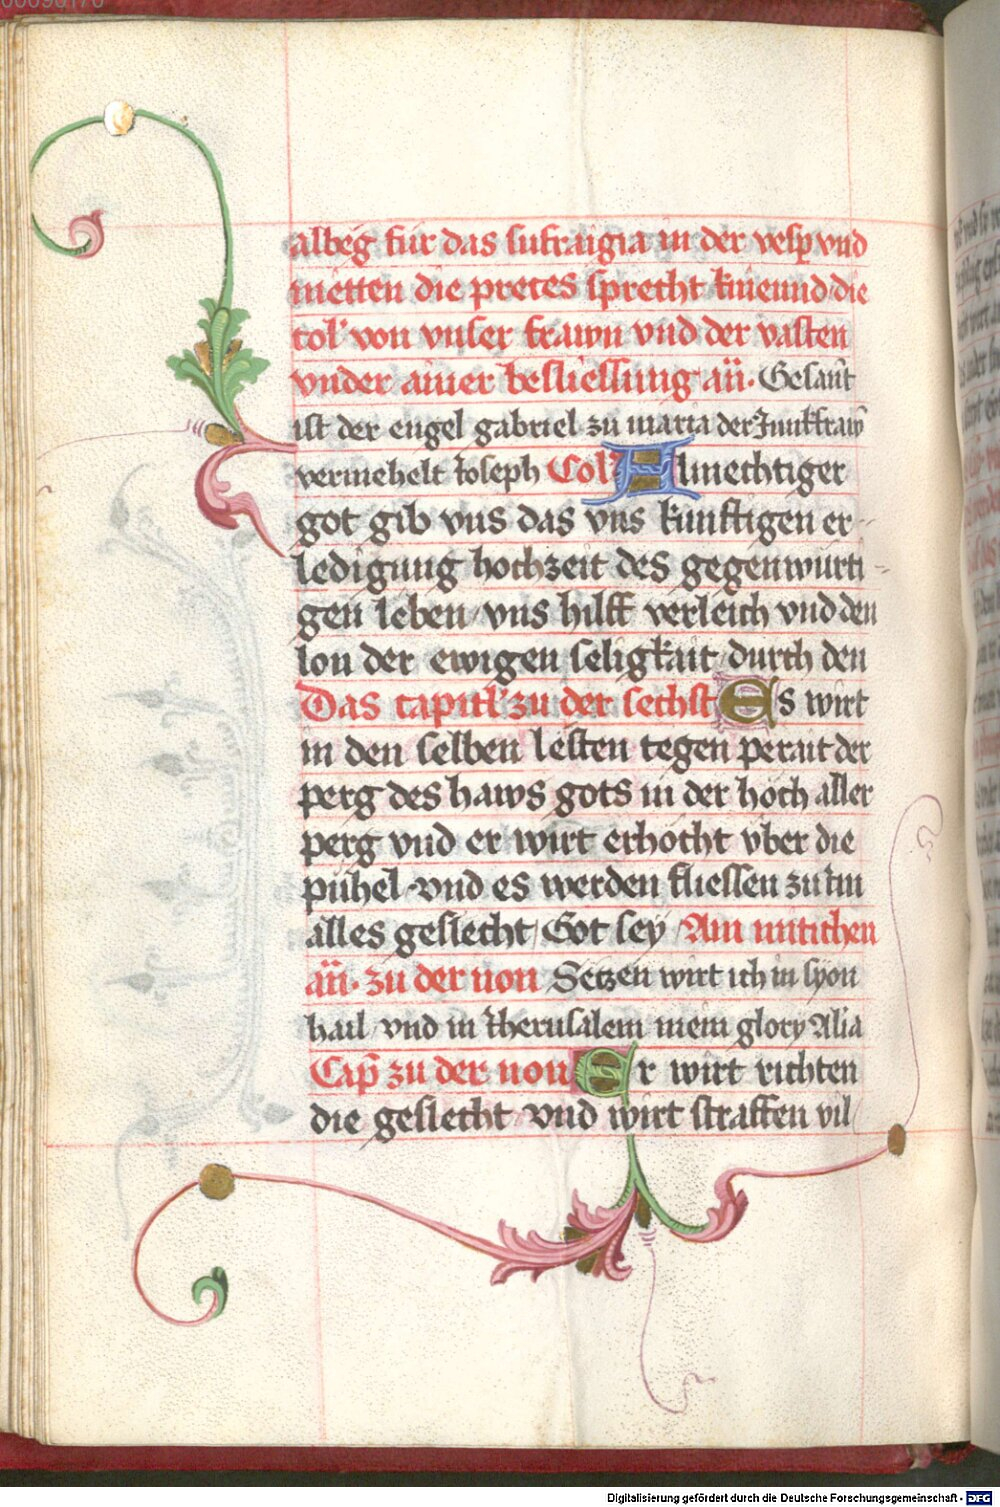 albeg fur das sufraigia in der vesp vnd
metten die preces sprecht knieund die
col' von vnser frawn vnd der vasten
vnder ainer besliessung an̄. Gesant
ist der engel gabriel zu maria der Junkfraw
vermehelt Joseph Col' Almechtiger
got gib vns das vns kunftigen er-
ledigung hochzeit des gegenwurti-
gen leben vns hilff verleich vnd den
lon der ewigen seligkait durch den
Das capitl' zu der sechst Es wirt
in den selben lesten tegen perait der
perg des haws gots in der hoch aller
perg vnd er wirt erhocht vber die
puhel vnd es werden fliessen zu im
alles geslecht Got sey Am mitichen
an̄. zu der non Setzen wirt ich in syon
hail vnd in Jherusalem mein glory Alia
Cap̄ zu der non Er wirt richten
die geslecht vnd wirt straffen vil
Digitalisierung gefördert durch die Deutsche Forschungsgemeinschaft - DFG